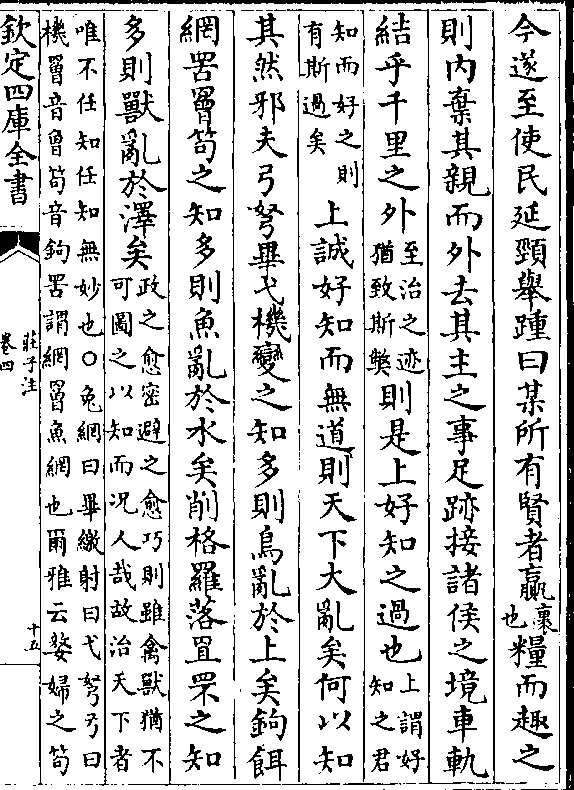 今遂至使民延頸舉踵曰某所有賢者贏裹也糧而趣之
則内棄其親而外去其主之事足跡接諸侯之境車軌
結乎千里之外至治之迹猶致斯獘則是上好知之過也上謂好知之君
知而好之則有斯過矣上誠好知而無道則天下大亂矣何以知
其然邪夫弓弩畢弋機變之知多則鳥亂於上矣鉤餌
網罟罾笱之知多則魚亂於水矣削格羅落罝罘之知
多則獸亂於澤矣政之愈密避之愈巧則雖禽獸猶不可圖之以知而况人哉故治天下者
唯不任知任知無妙也○兔網曰畢繳射曰弋弩牙曰
機罾音曾笱音鉤罟謂網罾魚網也爾雅云嫠婦之笱
欽定四庫全書
莊子注
卷四
十五